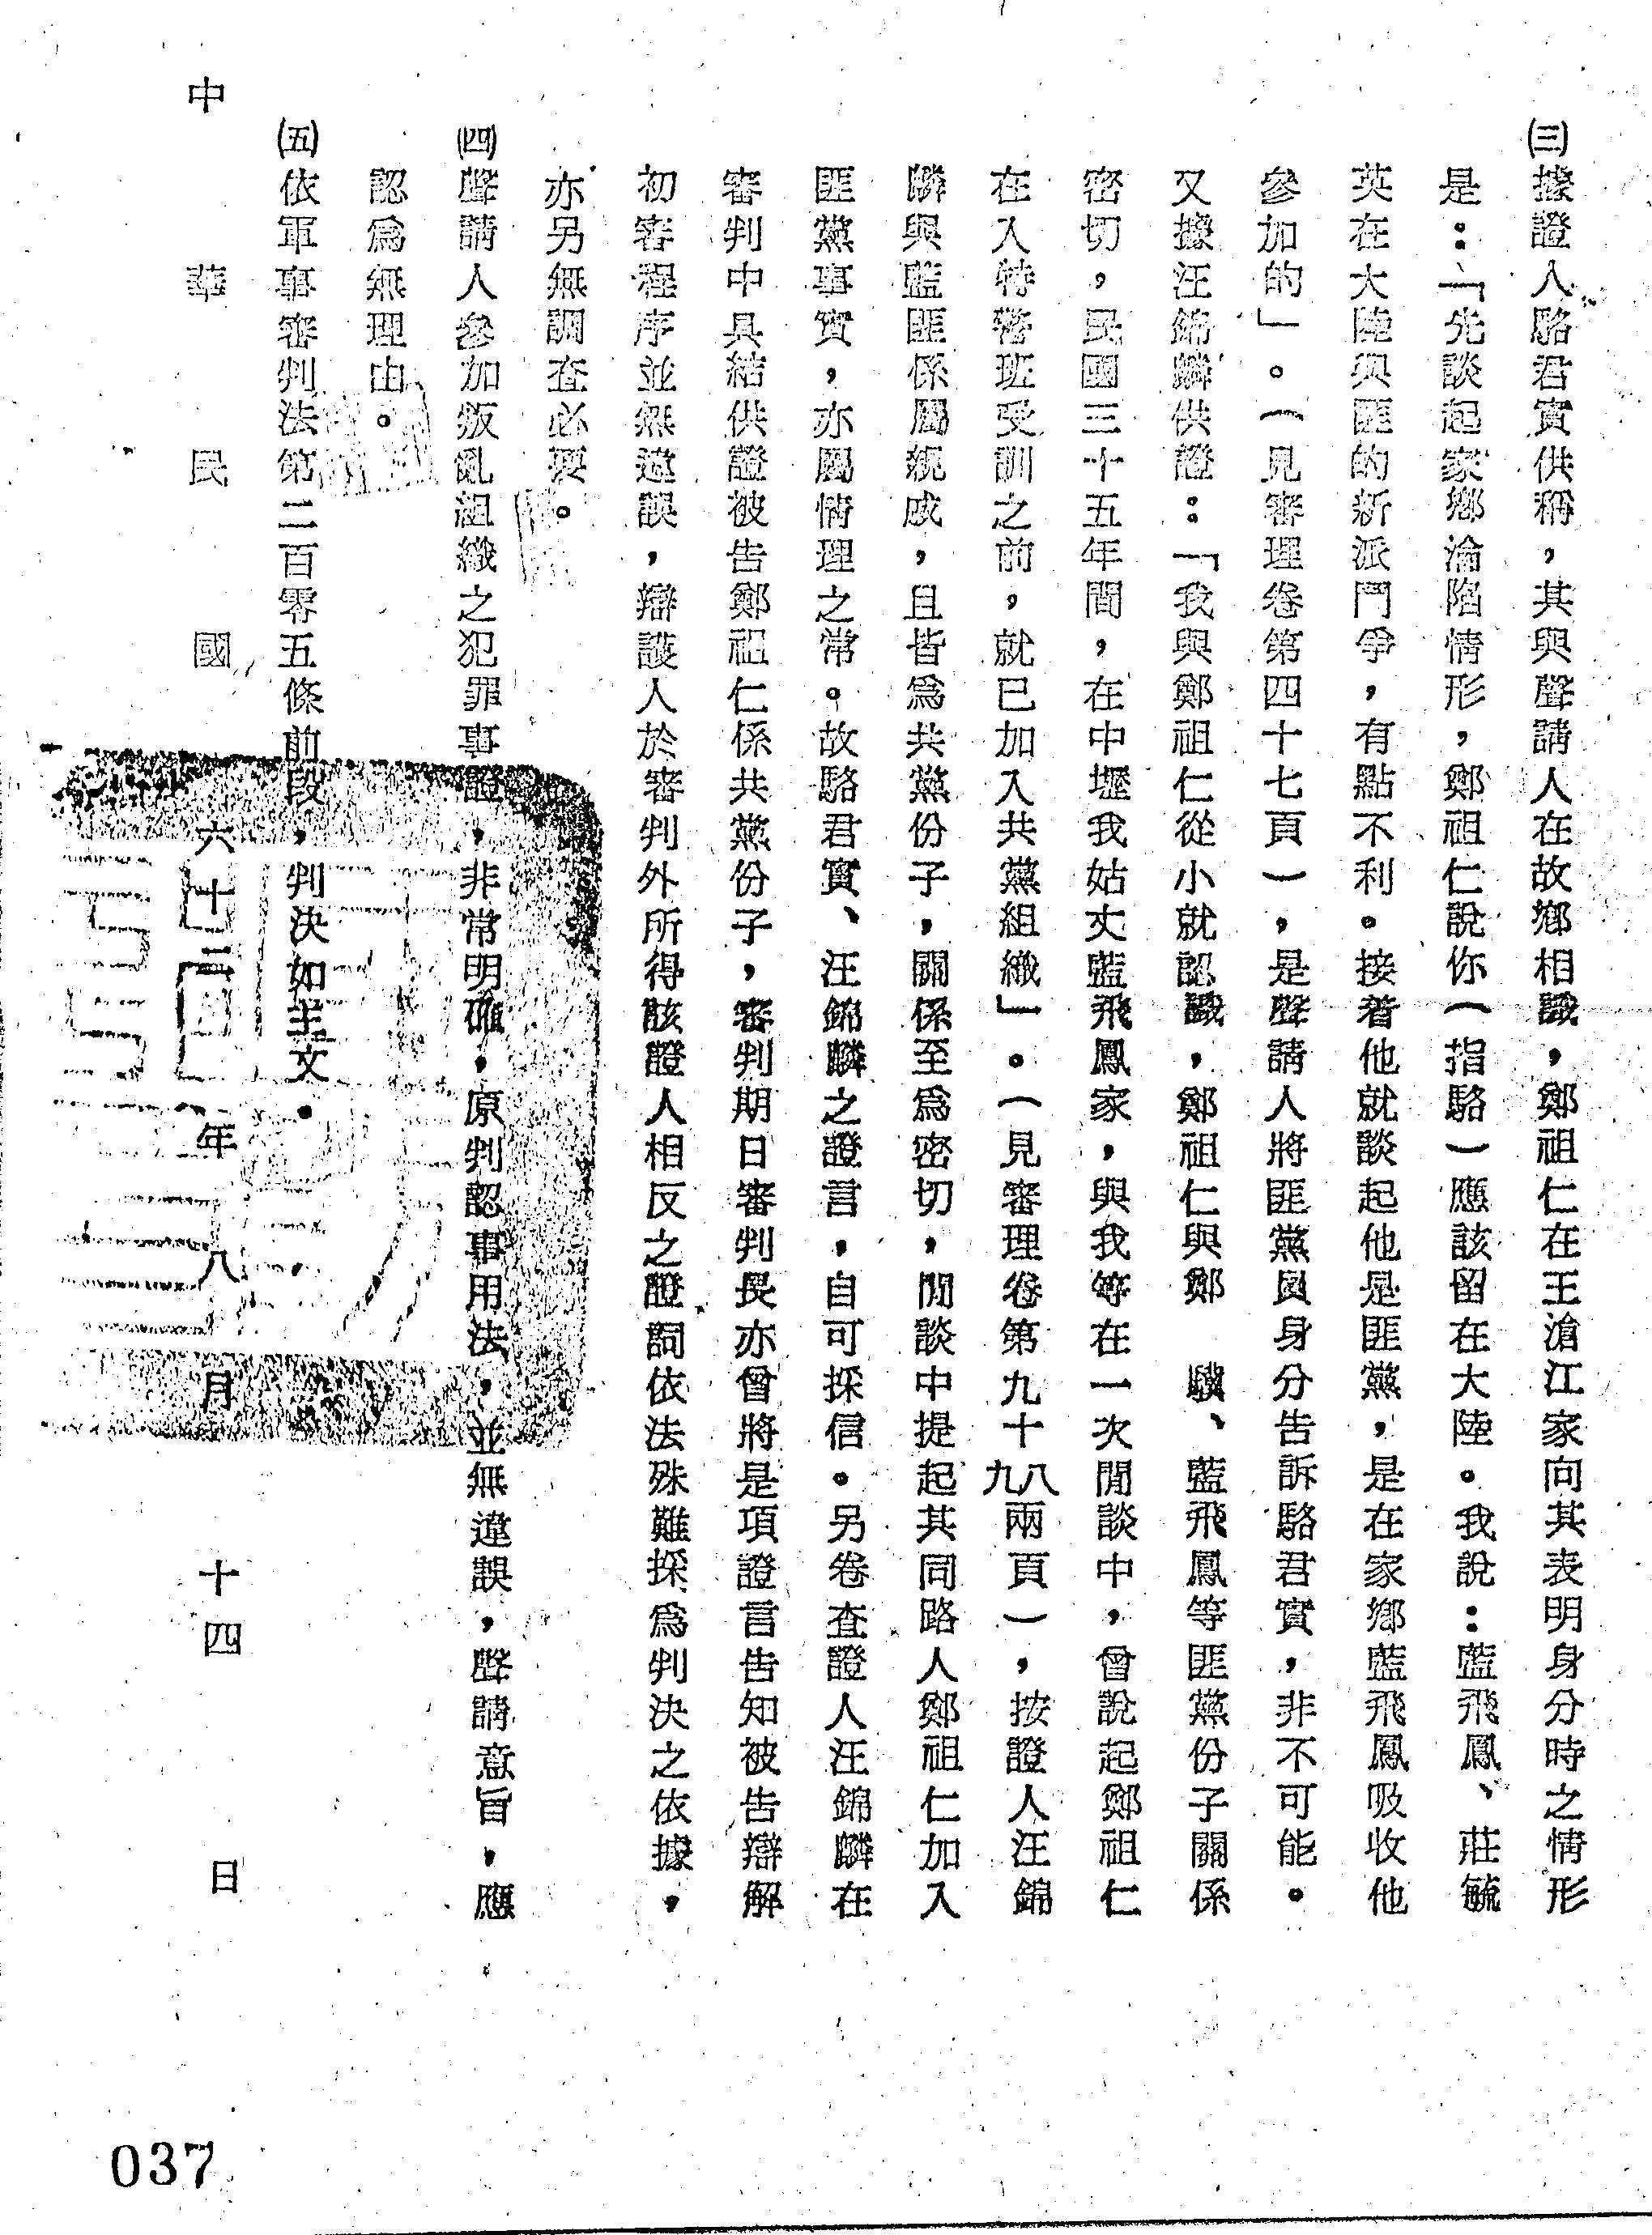 ㈢據證人駱君實供稱，其與聲請人在故鄉相識，鄭祖仁在王滄江家向其表明身分時之情形
是：「先談起家鄉淪陷情形，鄭祖仁說你（指駱）應該留在大陸。我說：藍飛鳳、莊毓
英在大陸與匪的新派鬥爭，有點不利。接着他就談起他是匪黨，是在家鄉藍飛鳳吸收他
參加的」。（見審理卷第四十七頁），是聲請人將匪黨員身分告訴駱君實，非不可能。
又據汪錦麟供證：「我與鄭祖仁從小就認識，鄭祖仁與鄭　驥、藍飛鳳等匪黨份子關係
密切，民國三十五年間，在中壢我姑丈藍飛鳳家，與我等在一次閒談中，曾說起鄭祖仁
在入特警班受訓之前，就已加入共黨組織」。（見審理卷第九十八九兩頁），按證人汪錦
麟與藍匪係屬親戚，且皆爲共黨份子，關係至爲密切，閒談中提起其同路人鄭祖仁加入
匪黨事實，亦屬情理之常。故駱君實、汪錦麟之證言，自可採信。另卷查證人汪錦麟在
審判中具結供證被告鄭祖仁係共黨份子，審判期日審判長亦曾將是項證言告知被告辯解
初審程序並無違誤，辯護人於審判外所得該證人相反之證詞依法殊難採爲判決之依據，
亦另無調查必要。
㈣聲請人參加叛亂組織之犯罪事證，非常明確，原判認事用法，並無違誤，聲請意旨，應
認爲無理由。
㈤依軍事審判法第二百零五條前段，判決如主文。
中華民國六十二年八月十四日
037